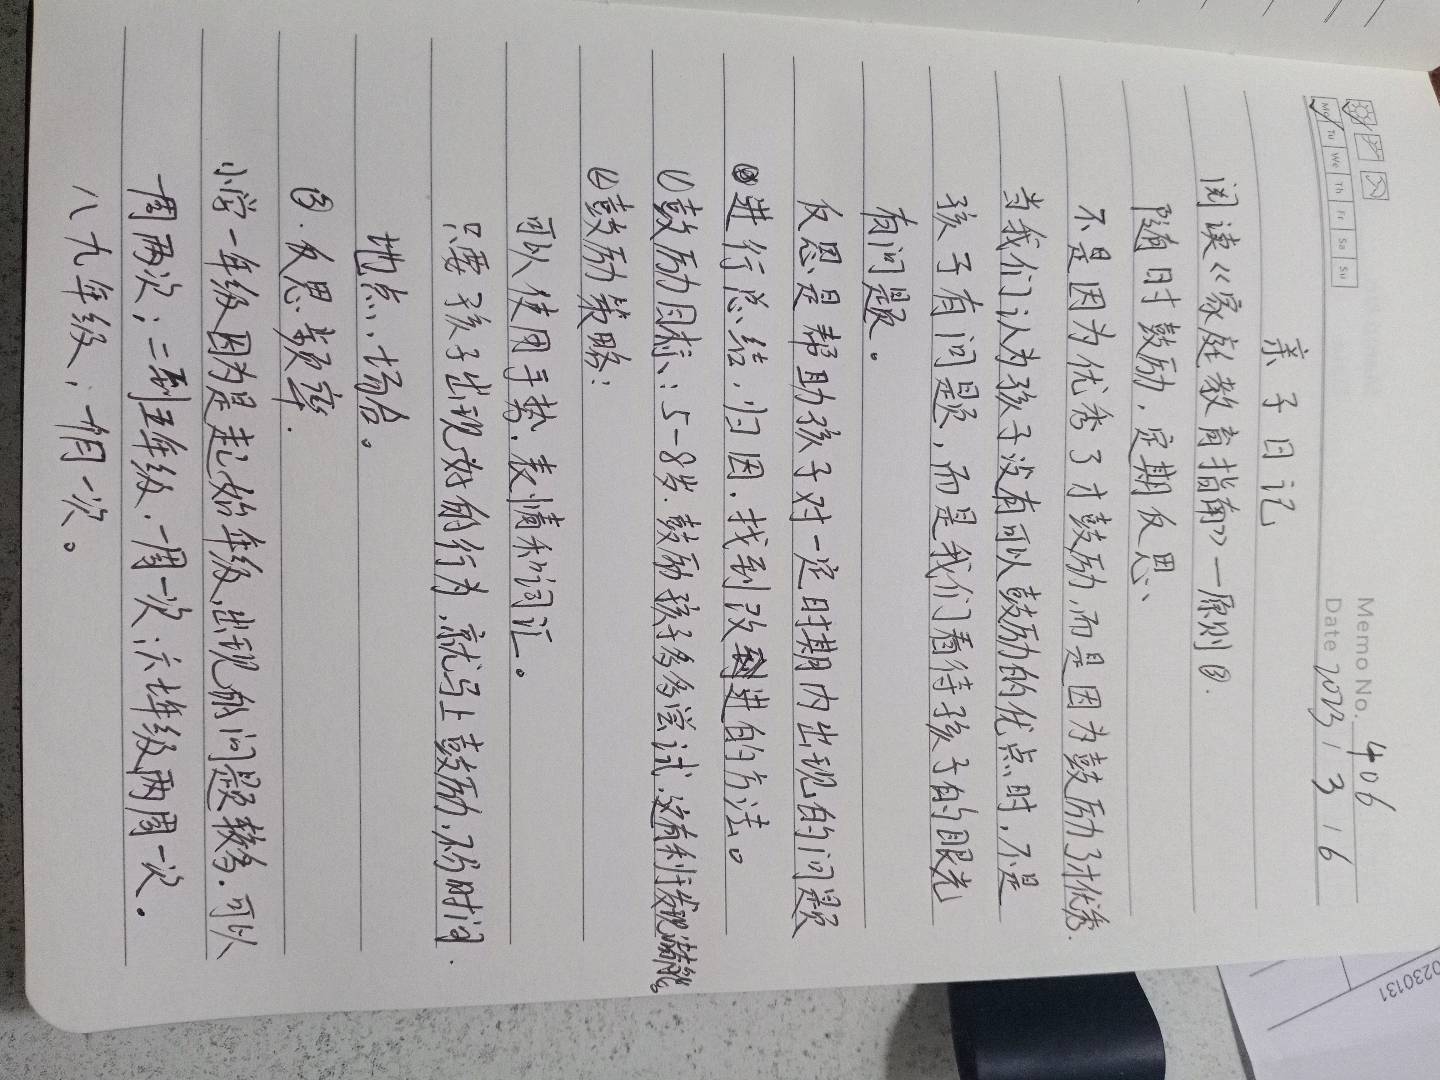 Memo No. 406
Mo Tu We Th Fr Sa Su
Date 2023 / 3 / 6
亲子日记
阅读《家庭教育指南》一原则②.
随时鼓励,定期反思、
不是因为优秀了才鼓励,而是因为鼓励了才优秀.
当我们认为孩子没有可以鼓励的优点时,不是
孩子有问题,而是我们看待孩子的眼光
有问题。
反思是帮助孩子对一定时期内出现的问题
进行总结,归因.找到改进的方法。
①鼓励目标:5-8岁.鼓励孩子多多尝试.这有利于发现潜能。
②鼓励策略:
可以使用手势.表情和词汇。
只要孩子出现好的行为,就马上鼓励,不分时间.
地点、场合。
③.反思频率.
小学一年级因为是起始年级,出现的问题较多.可以
一周两次;二到五年级.一周一次;六七年级,两周一次.
八九年级,一月一次。
0230131